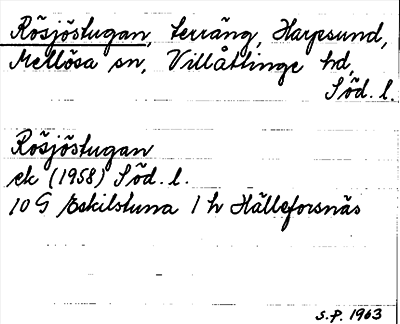 Rösjöstugan, terräng, Harpsund,
Mellösa sn, Villåttinge hd,
Söd. l.
Rösjöstugan
ek (1958) Söd. l.
10 G Eskilstuna 1 h Hälleforsnäs
S.P. 1963